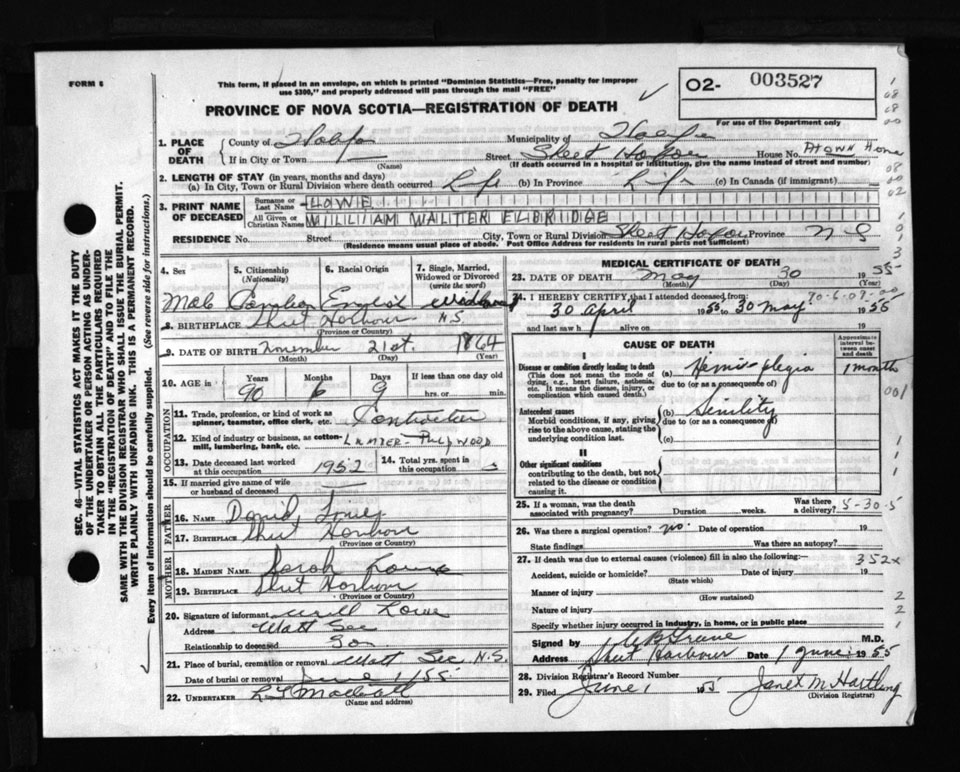 FORM 6
This form, if placed in an envelope, on which is printed "Dominion Statistics—Free, penalty for improper
use $300," and properly addressed will pass through the mail "FREE"
O2- 003527
PROVINCE OF NOVA SCOTIA—REGISTRATION OF DEATH
For use of the Department only
SEC. 46—VITAL STATISTICS ACT MAKES IT THE DUTY
OF THE UNDERTAKER OR PERSON ACTING AS UNDER-
TAKER TO OBTAIN ALL THE PARTICULARS REQUIRED
IN THE "REGISTRATION OF DEATH" AND TO FILE THE
SAME WITH THE DIVISION REGISTRAR WHO SHALL ISSUE THE BURIAL PERMIT.
WRITE PLAINLY WITH UNFADING INK. THIS IS A PERMANENT RECORD.
Every item of information should be carefully supplied. (See reverse side for instructions.)
1. PLACE OF DEATH
County of Municipality of
If in City or Town Street Sheet House No. At Own Home
(Name) (If death occurred in a hospital or institution, give the name instead of street and number)
2. LENGTH OF STAY (in years, months and days)
(a) In City, Town or Rural Division where death occurred Life (b) In Province Life (c) In Canada (if immigrant)
3. PRINT NAME OF DECEASED
Surname or Last Name LOWE
All Given or Christian Names WILLIAM WALTER ELBRIDGE
RESIDENCE No. Street City, Town or Rural Division Sheet Province N S
(Residence means usual place of abode. Post Office Address for residents in rural parts not sufficient)
4. Sex 5. Citizenship (Nationality) 6. Racial Origin 7. Single, Married, Widowed or Divorced (write the word)
Male Canadian English Widowed
8. BIRTHPLACE Sheet Harbour N.S.
(Province or Country)
9. DATE OF BIRTH November 21st. 1864
(Month) (Day) (Year)
10. AGE in Years Months Days If less than one day old
90 6 9 hrs. or min.
OCCUPATION
11. Trade, profession, or kind of work as
spinner, teamster, office clerk, etc. Contractor
12. Kind of industry or business, as cotton-
mill, lumbering, bank, etc. LUMBER- PULPWOOD
13. Date deceased last worked at this occupation 1952 14. Total yrs. spent in this occupation
15. If married give name of wife
or husband of deceased
FATHER
16. NAME David
17. BIRTHPLACE Sheet Harbour
(Province or Country)
MOTHER
18. MAIDEN NAME. Sarah
19. BIRTHPLACE Sheet Harbour
(Province or Country)
20. Signature of informant Lowe
Address Watt Sec
Relationship to deceased Son
21. Place of burial, cremation or removal Watt Sec N.S.
Date of burial or removal June 1/55
22. UNDERTAKER
(Name and address)
MEDICAL CERTIFICATE OF DEATH
23. DATE OF DEATH May 30 1955
(Month) (Day)
24. I HEREBY CERTIFY that I attended deceased from: 90-6-09-00
30 April 1955 to 30 May 1955
and last saw h alive on 19
CAUSE OF DEATH Approximate interval between onset and death
I
Disease or condition directly leading to death (a) Hemi-plegia 1 month
(This does not mean the mode of
dying, e.g., heart failure, asthenia,
etc. It means the disease, injury, or
complication which caused death.)
due to (or as a consequence of)
001
Antecedent causes (b) Senility
Morbid conditions, if any, giving
rise to the above cause, stating the
underlying condition last.
due to (or as a consequence of)
(c)
II
Other significant conditions
contributing to the death, but not
related to the disease or condition
causing it.
25. If a woman, was the death associated with pregnancy? Duration weeks. Was there a delivery? 5-30-5
26. Was there a surgical operation? no. Date of operation 19
State findings Was there an autopsy?
27. If death was due to external causes (violence) fill in also the following:— 352x
Accident, suicide or homicide? Date of injury 19
(State which)
Manner of injury
(How sustained)
Nature of injury
Specify whether injury occurred in industry, in home, or in public place
Signed by M.D.
Address Sheet Harbour Date 1 June 1955
28. Division Registrar's Record Number
29. Filed June 1 1955 Janet M Hartling
(Division Registrar)